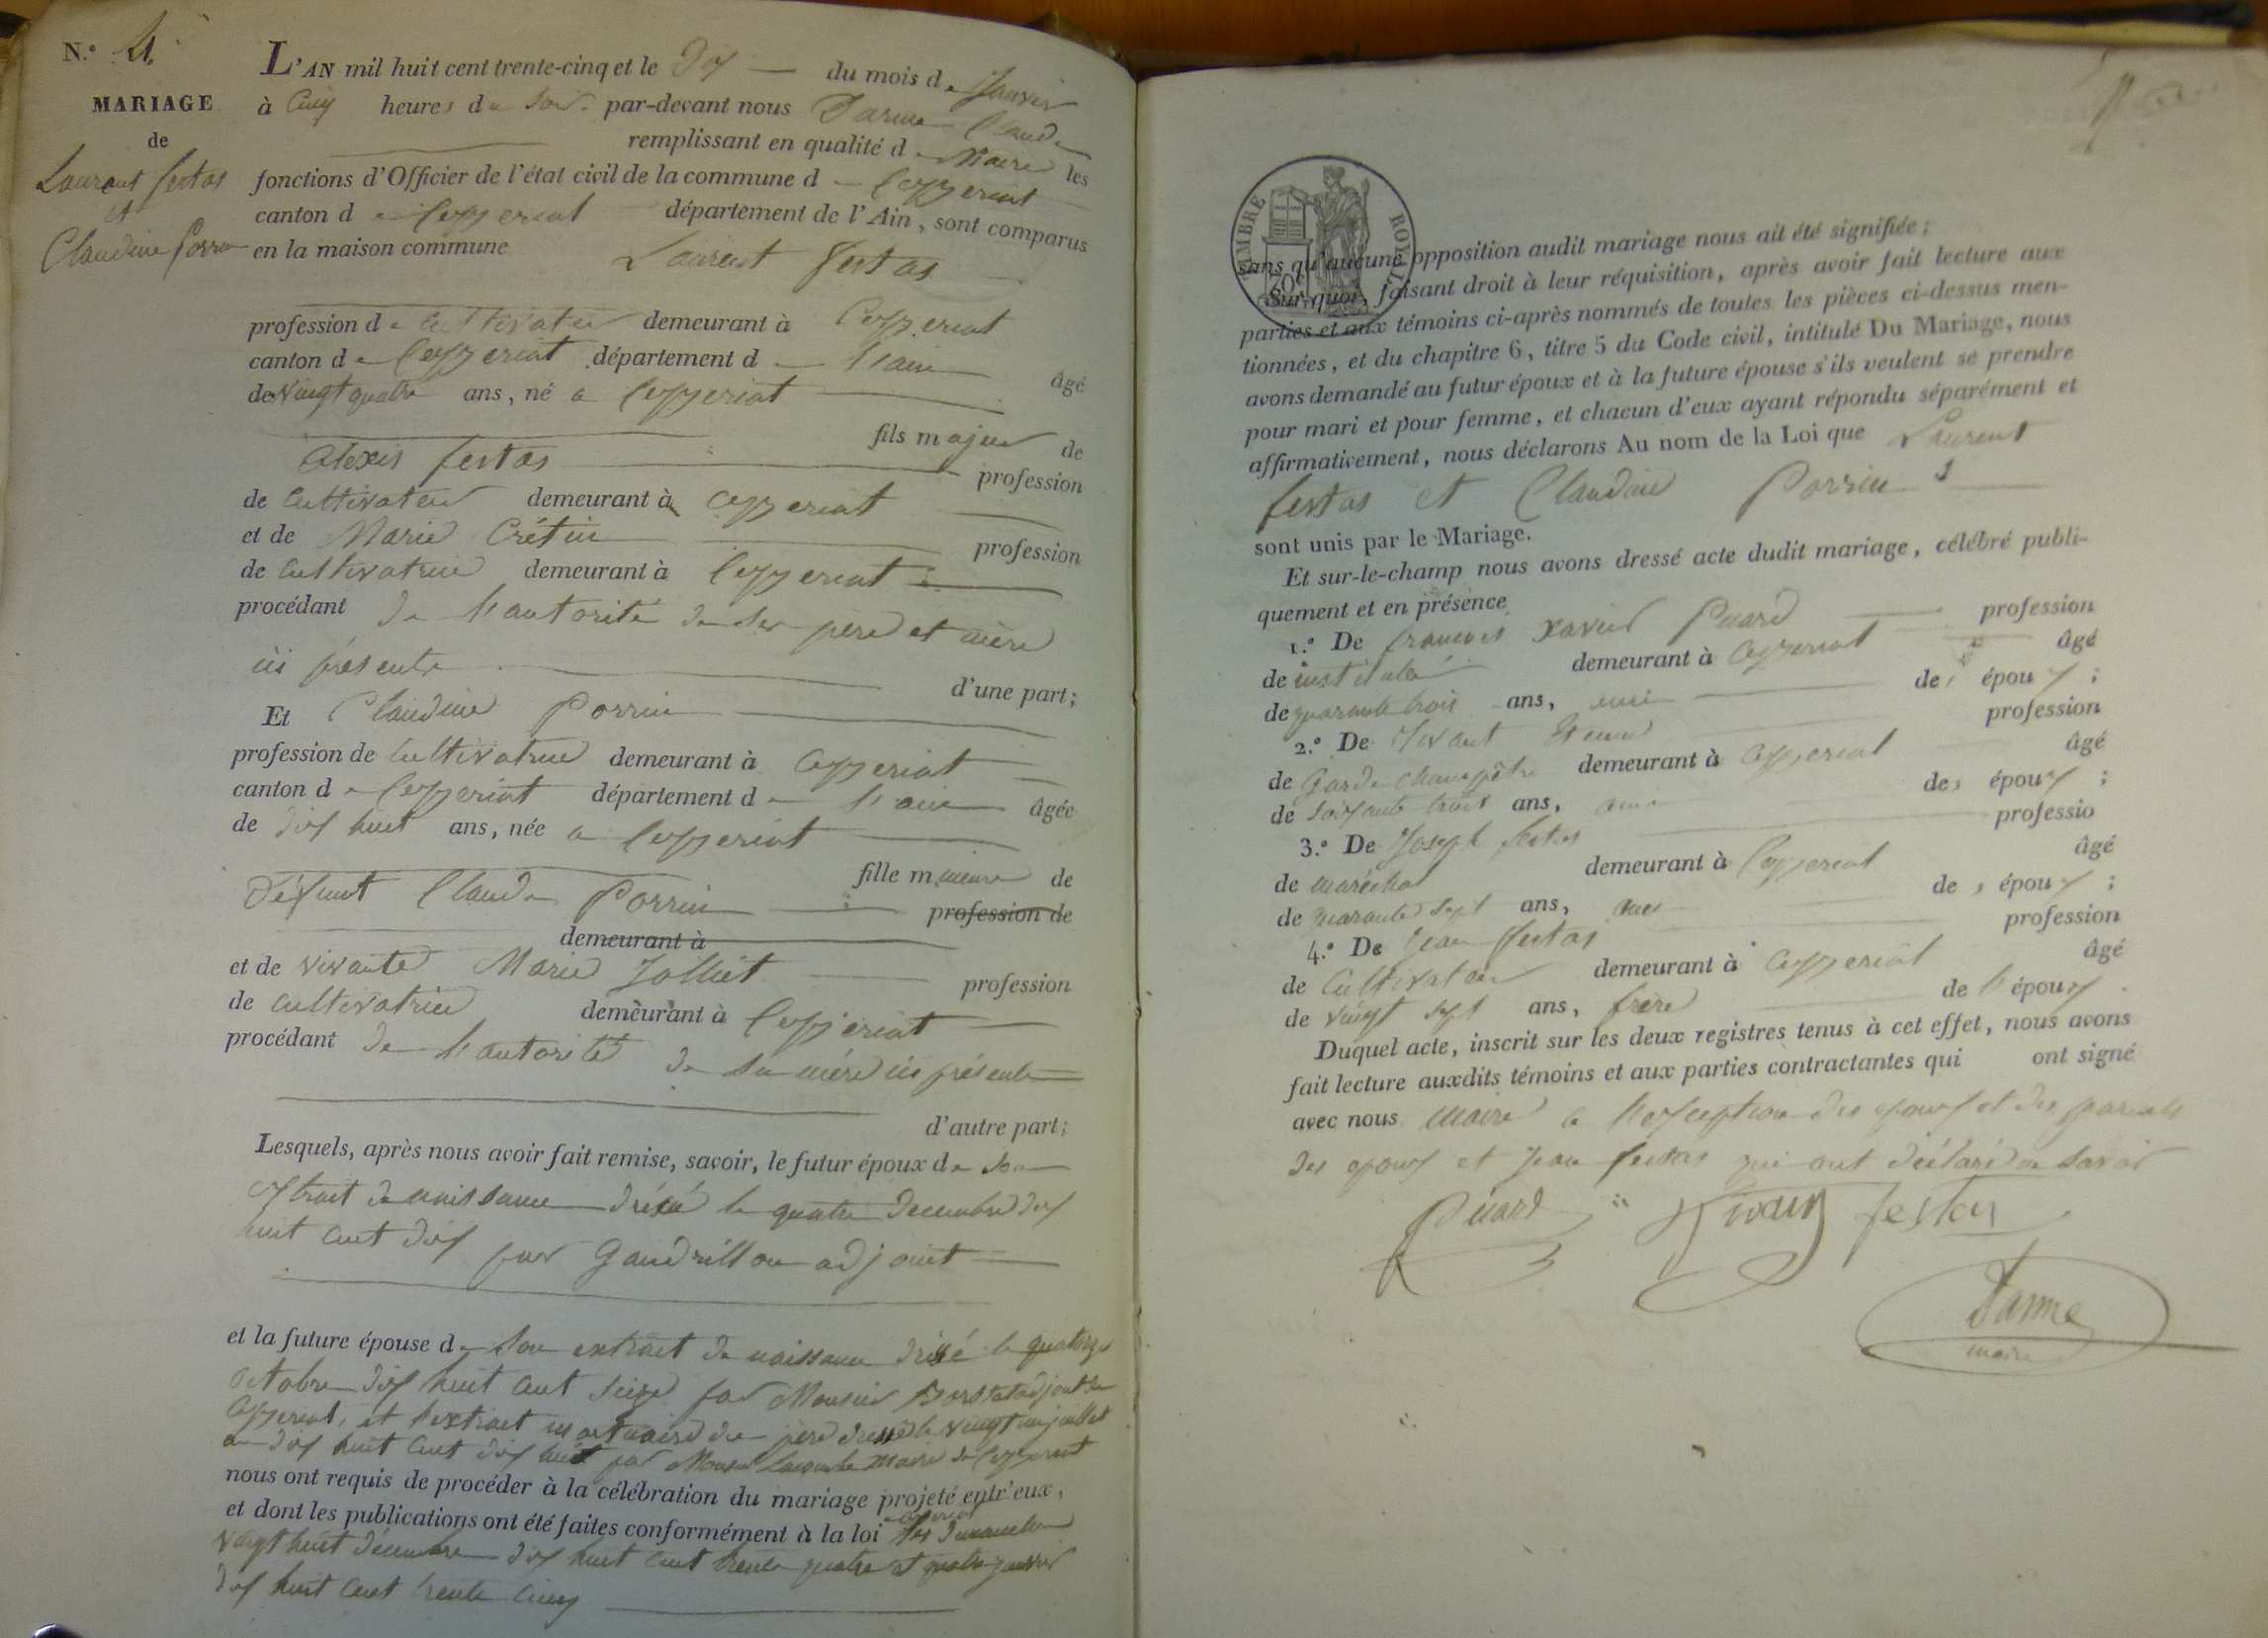 N.° 4.
MARIAGE
de
Laurent festas
et
Claudine Porrin
L'AN mil huit cent trente-cinq et le dix du mois de Janvier
à Cinq heures du Soir par-devant nous Darme Claude
remplissant en qualité de Maire les
fonctions d'Officier de l'état civil de la commune de Ceyzeriat
canton de Ceyzeriat département de l'Ain, sont comparus
en la maison commune Laurent festas
profession de Cultivateur demeurant à Ceyzeriat
canton de Ceyzeriat département de l'ain âgé
de Vingt quatre ans, né a Ceyzeriat
fils majeur de
alexis festas profession
de Cultivateur demeurant à Ceyzeriat
et de Marie Crétin profession
de Cultivatrice demeurant à Ceyzeriat
procédant de l'autorité de ses père et mère
ici présents d'une part;
Et Claudine Porrin
profession de Cultivatrice demeurant à Ceyzeriat
canton de Ceyzeriat département de l'ain âgée
de dix huit ans, née a Ceyzeriat
fille mineure de
défunt Claude Porrin profession de
demeurant à
et de vivante Marie Jolliet profession
de cultivatrice demeurant à Ceyzeriat
procédant de l'autorité de sa mère ici présente
d'autre part;
Lesquels, après nous avoir fait remise, savoir, le futur époux de son
extrait de naissance dressé le quatre Decembre dix
huit cent dix par Gandrillon adjoint
et la future épouse de son extrait de naissance dressé le quatorze
Octobre dix huit cent seize par Monsieur adjoint de
Ceyzeriat, et l'extrait mortuaire du père dressé le vingt un juillet
an dix huit cent dix huit par Monsieur maire de Ceyzeriat
nous ont requis de procéder à la célébration du mariage projeté entr'eux,
et dont les publications ont été faites conformément à la loi les Dimanches
vingt huit décembre dix huit cent trente quatre et quatre janvier
dix huit cent trente cinq
TIMBRE ROYAL
sans qu'aucune opposition audit mariage nous ait été signifiée;
Sur quoi, faisant droit à leur réquisition, après avoir fait lecture aux
parties et aux témoins ci-après nommés de toutes les pièces ci-dessus men-
tionnées, et du chapitre 6, titre 5 du Code civil, intitulé Du Mariage, nous
avons demandé au futur époux et à la future épouse s'ils veulent se prendre
pour mari et pour femme, et chacun d'eux ayant répondu séparément et
affirmativement, nous déclarons Au nom de la Loi que Laurent
festas et Claudine Porrin
sont unis par le Mariage.
Et sur-le-champ nous avons dressé acte dudit mariage, célébré publi-
quement et en présence
1.° De francois xavier Puard profession
de demeurant à Ceyzeriat âgé
de quarante trois ans, ami des époux;
2.° De profession
de Garde champêtre demeurant à Ceyzeriat âgé
de Soixante trois ans, ami des époux;
3.° De Joseph festas professio
de maréchal demeurant à Ceyzeriat âgé
de quarante sept ans, ami des époux;
4.° De Jean festas profession
de Cultivateur demeurant à Ceyzeriat âgé
de Vingt sept ans, frère de l'époux.
Duquel acte, inscrit sur les deux registres tenus à cet effet, nous avons
fait lecture auxdits témoins et aux parties contractantes qui ont signé
avec nous maire a l'exception des epoux et des parents
des epoux et Jean festas qui ont déclaré ne savoir
Puard festas
Darme
maire